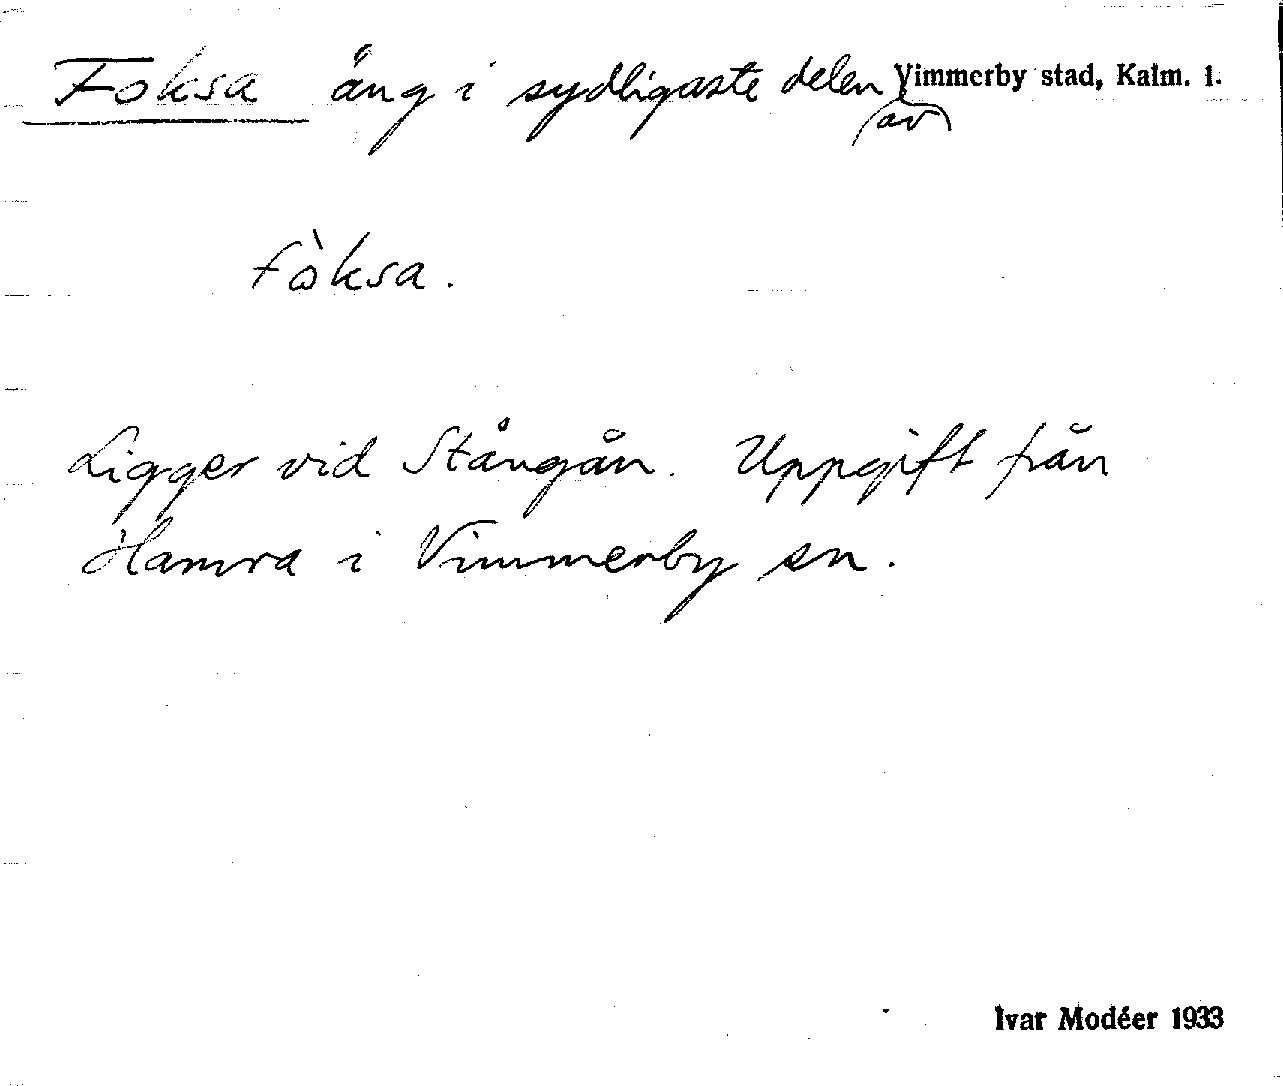 Foksa äng i sydligaste delen av Vimmerby stad, Kalm. l.
fòksa.
Ligger vid Stångån. Uppgift från
Hamra i Vimmerby sn.
Ivar Modéer 1933